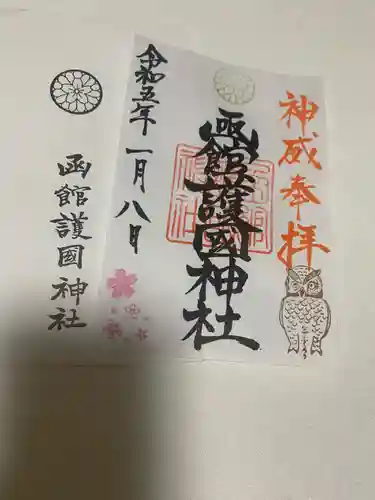 神威奉拝
函館護國神社
令和五年一月八日
函館護國神社